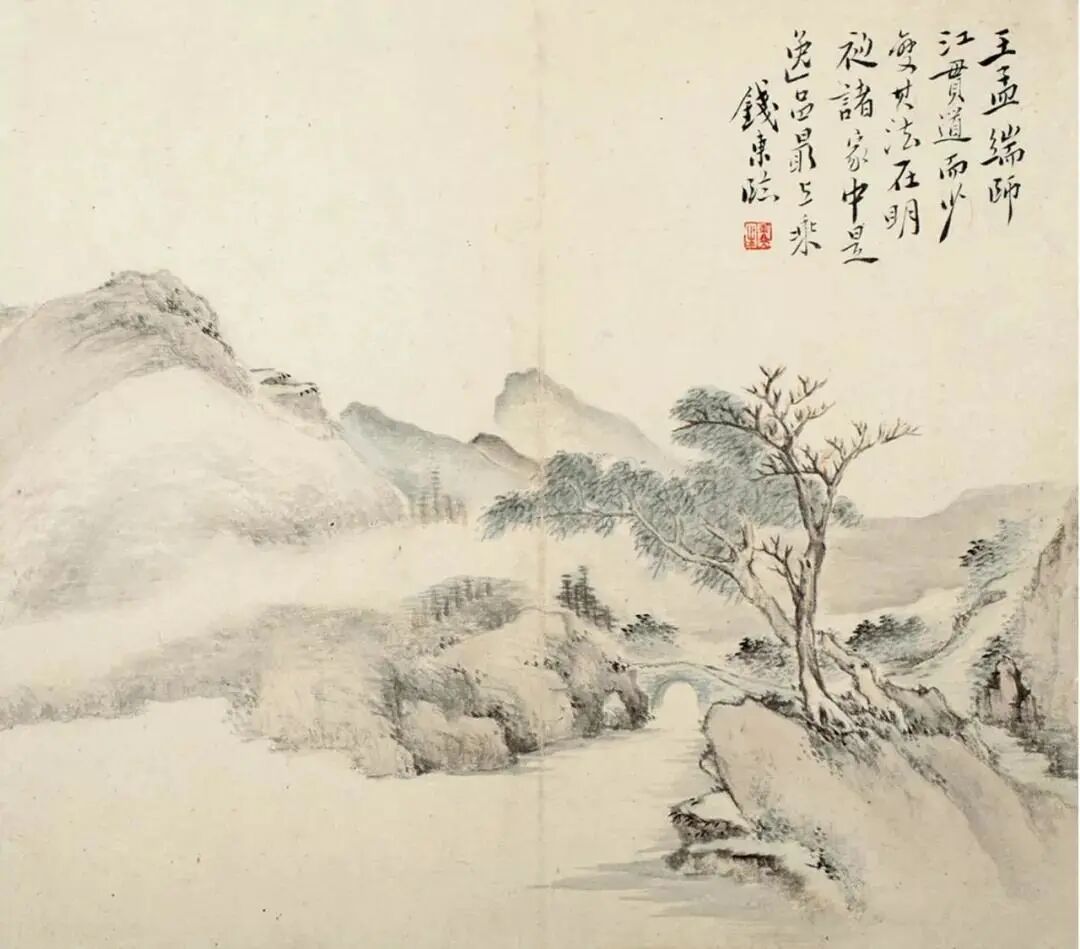 王孟端師
江貫道而少
變其法在明
初諸家中是
逸品最上乘
錢東臨